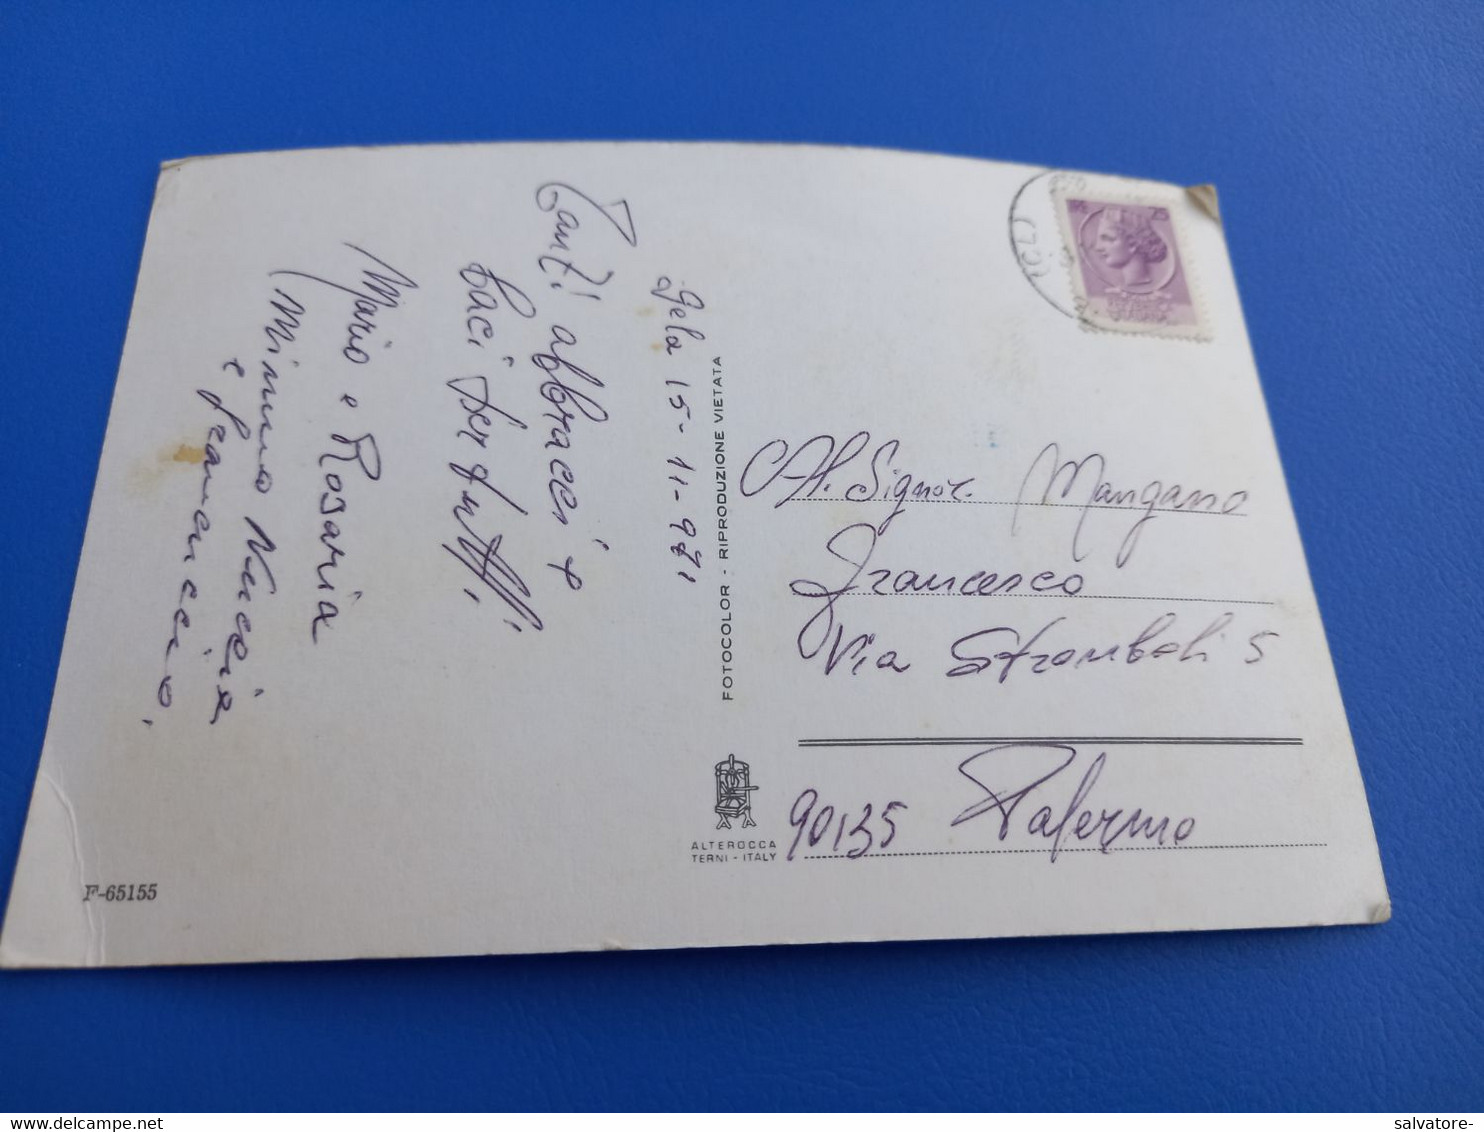 Gela 15-11-971
Tanti abbracci e
baci per tutti,
Mario e Rosaria
Mimmo Nuccia
e Francuccio,
FOTOCOLOR - RIPRODUZIONE VIETATA
(CL)
Al. Signor. Mangano
Francesco
Via Stromboli 5
90135 Palermo
ALTEROCCA
TERNI - ITALY
F-65155
www.delcampe.net
salvatore-